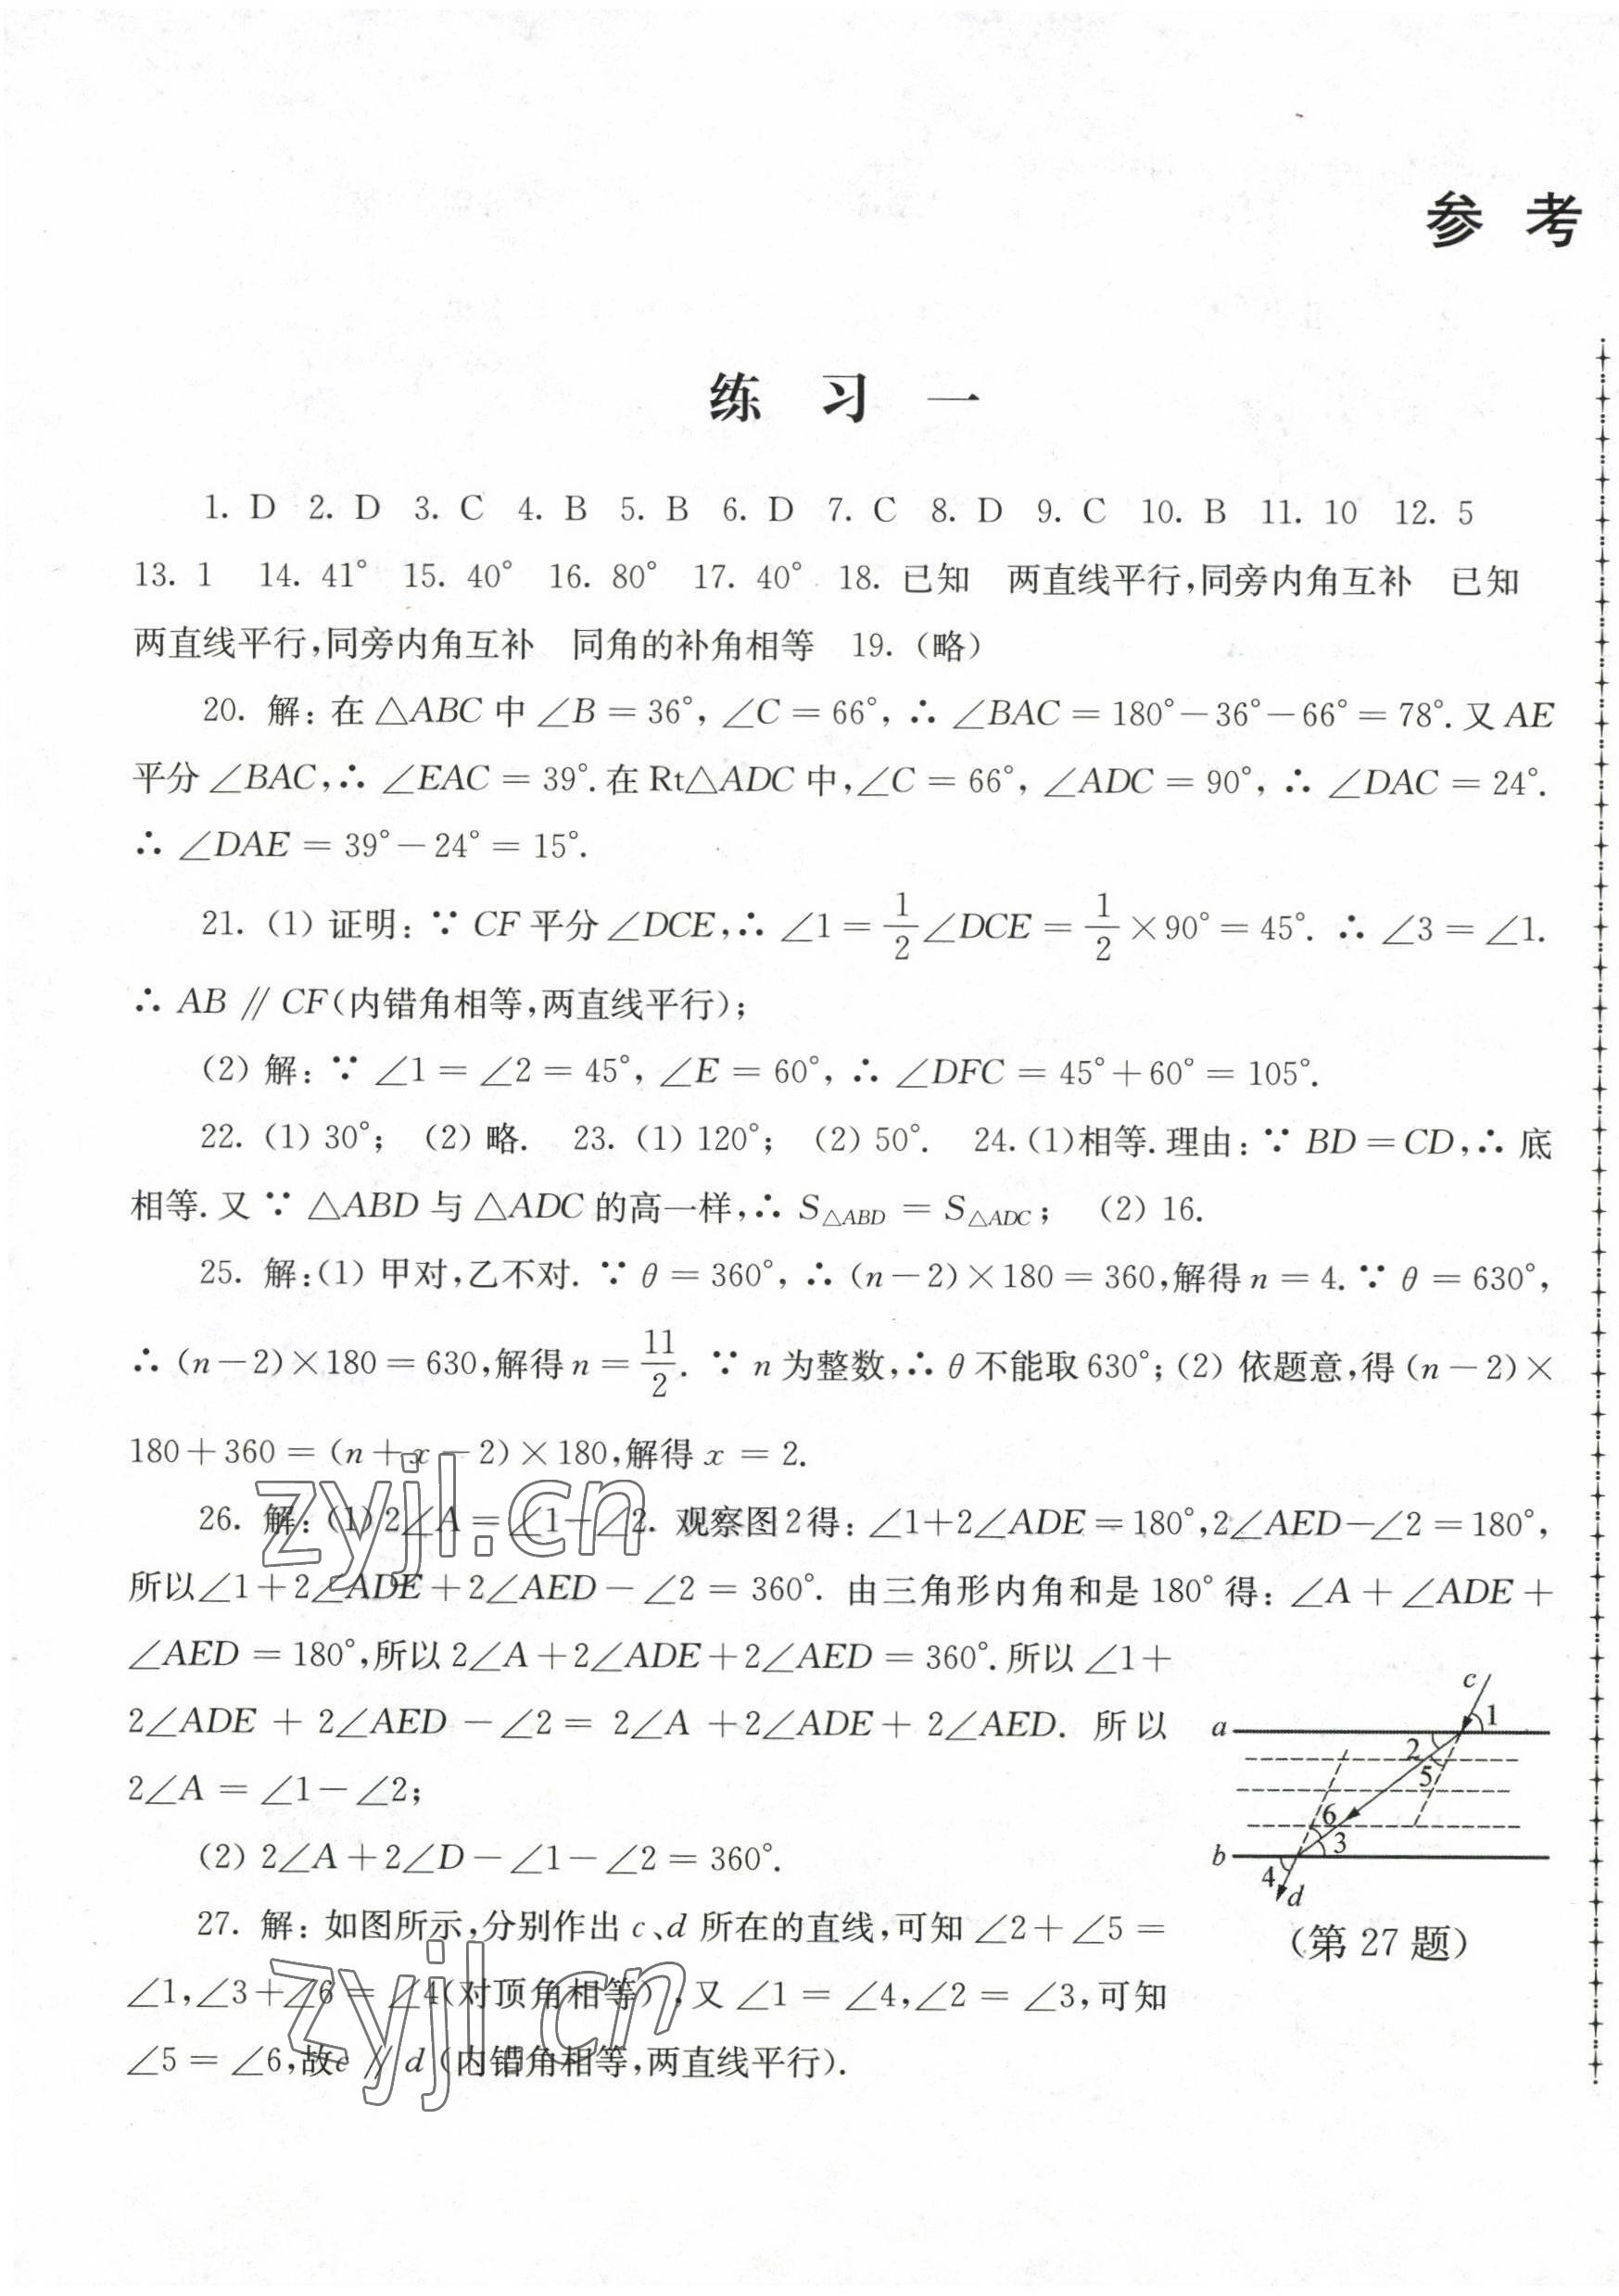 参 考
练 习 一
1. D 2. D 3. C 4. B 5. B 6. D 7. C 8. D 9. C 10. B 11. 10 12. 5
13. 1 14. 41° 15. 40° 16. 80° 17. 40° 18. 已知 两直线平行,同旁内角互补 已知
两直线平行,同旁内角互补 同角的补角相等 19. (略)
20. 解: 在 △ABC 中 ∠B = 36°, ∠C = 66°, ∴ ∠BAC = 180°－36°－66° = 78°. 又 AE
平分 ∠BAC,∴ ∠EAC = 39°. 在 Rt△ADC 中,∠C = 66°, ∠ADC = 90°, ∴ ∠DAC = 24°.
∴ ∠DAE = 39°－24° = 15°.
21. (1) 证明: ∵ CF 平分 ∠DCE,∴ ∠1 = 1/2 ∠DCE = 1/2 ×90° = 45°. ∴ ∠3 = ∠1.
∴ AB ∥ CF(内错角相等,两直线平行);
(2) 解: ∵ ∠1 = ∠2 = 45°, ∠E = 60°, ∴ ∠DFC = 45°＋60° = 105°.
22. (1) 30°; (2) 略. 23. (1) 120°; (2) 50°. 24. (1)相等. 理由: ∵ BD = CD,∴ 底
相等. 又 ∵ △ABD 与 △ADC 的高一样,∴ S△ABD = S△ADC; (2) 16.
25. 解:(1) 甲对,乙不对. ∵ θ = 360°, ∴ (n－2)×180 = 360,解得 n = 4. ∵ θ = 630°,
∴ (n－2)×180 = 630,解得 n = 11/2. ∵ n 为整数,∴ θ 不能取 630°; (2) 依题意,得 (n－2)×
180＋360 = (n＋x－2)×180,解得 x = 2.
26. 解: (1) 2∠A = ∠1－∠2. 观察图 2 得: ∠1＋2∠ADE = 180°,2∠AED－∠2 = 180°,
所以∠1＋2∠ADE＋2∠AED－∠2 = 360°. 由三角形内角和是 180° 得: ∠A＋∠ADE＋
∠AED = 180°,所以 2∠A＋2∠ADE＋2∠AED = 360°. 所以 ∠1＋
2∠ADE ＋ 2∠AED － ∠2 = 2∠A ＋2∠ADE＋ 2∠AED. 所以
2∠A = ∠1－∠2;
(2) 2∠A＋2∠D－∠1－∠2 = 360°.
27. 解: 如图所示,分别作出 c、d 所在的直线,可知 ∠2＋∠5 =
∠1,∠3＋∠6 = ∠4(对顶角相等),又 ∠1 = ∠4,∠2 = ∠3,可知
∠5 = ∠6,故c ∥ d (内错角相等,两直线平行).
c
1
a
2
5
6
3
b
4
d
(第 27 题)
zyjl.cn
zyjl.cn